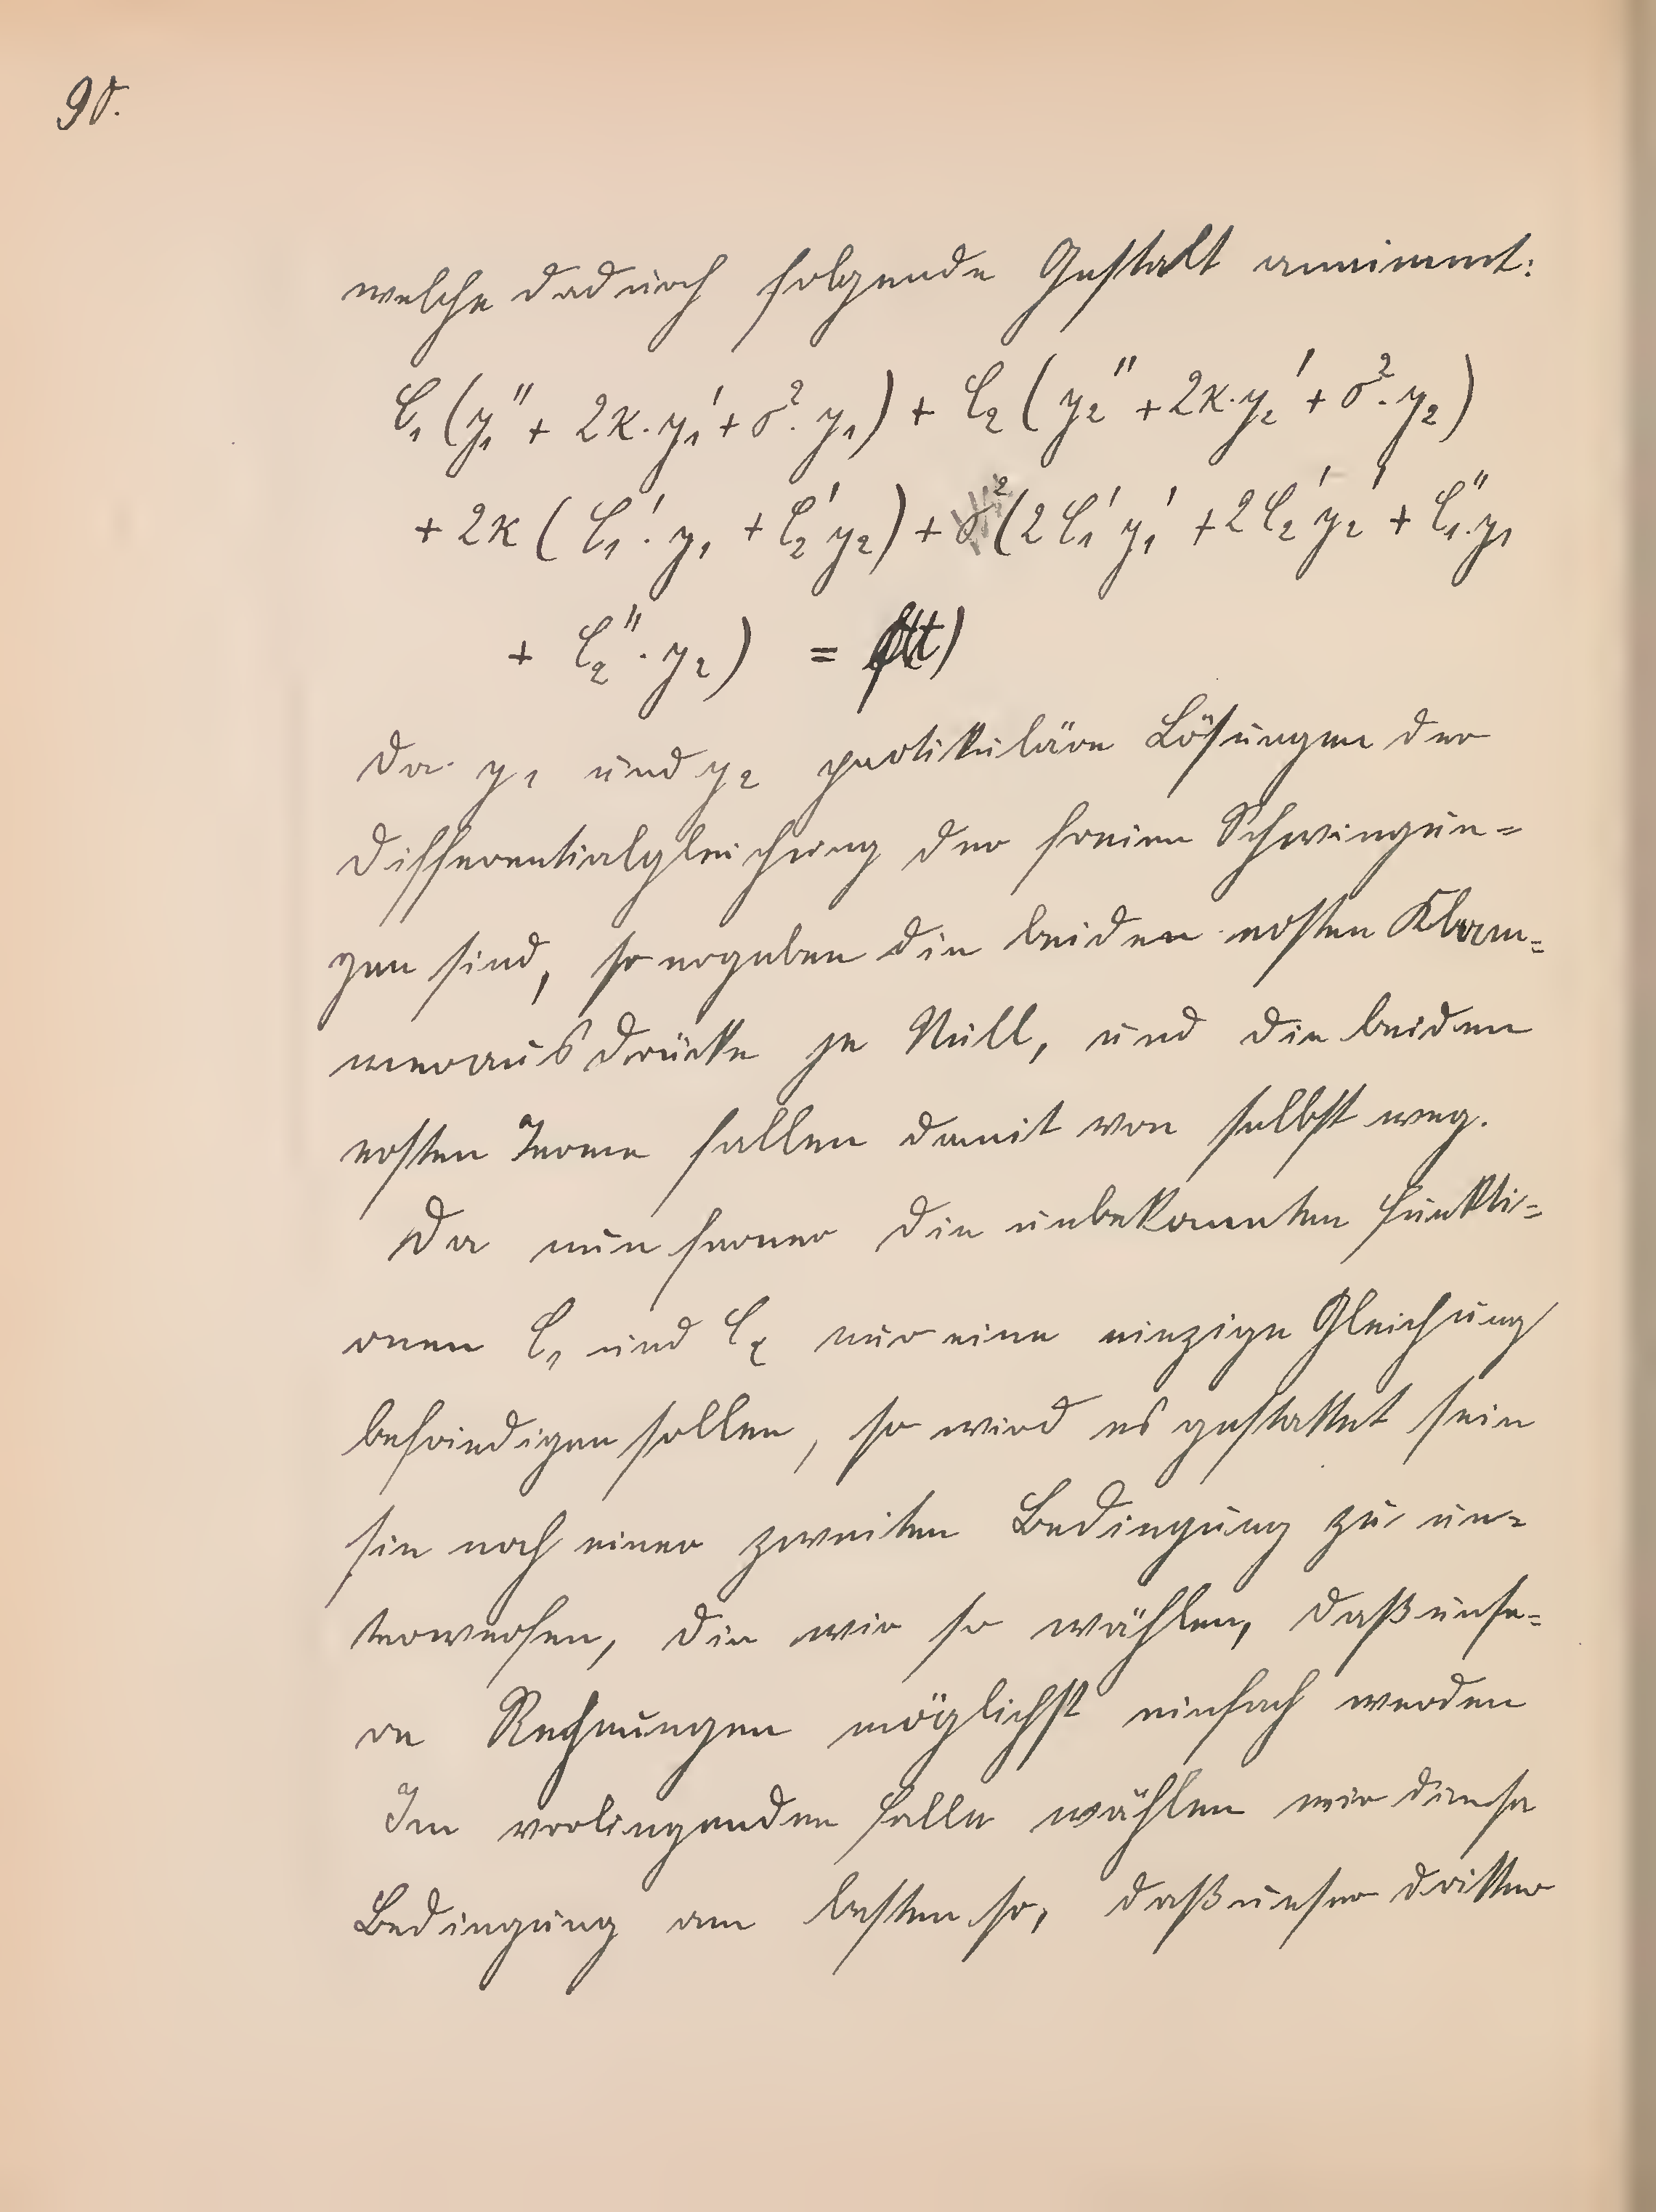 90.
welche dadurch folgende Gestalt annimmt:
C₁ (y₁'' + 2κ · y₁' + σ² · y₁) + C₂ (y₂'' + 2κ · y₂' + σ² · y₂)
+ 2κ (C₁' · y₁ + C₂' y₂) + (2 C₁' y₁' + 2 C₂' y₂' + C₁'' · y₁
+ C₂'' · y₂) = f(t)
Da y₁ und y₂ partikuläre Lösungen der
Differentialgleichung der freien Schwingun=
gen sind, so ergeben die beiden ersten Klam=
merausdrücke je Null, und die beiden
ersten Terme fallen damit von selbst weg.
Da nun ferner die unbekannten Funkti=
onen C₁ und C₂ nur eine einzige Gleichung
befriedigen sollen, so wird es gestattet sein
sie noch einer zweiten Bedingung zu un=
terwerfen, die wir so wählen, daß unse=
re Rechnungen möglichst einfach werden
Im vorliegenden Falle wählen wir diese
Bedingung am besten so, daß unser dritter